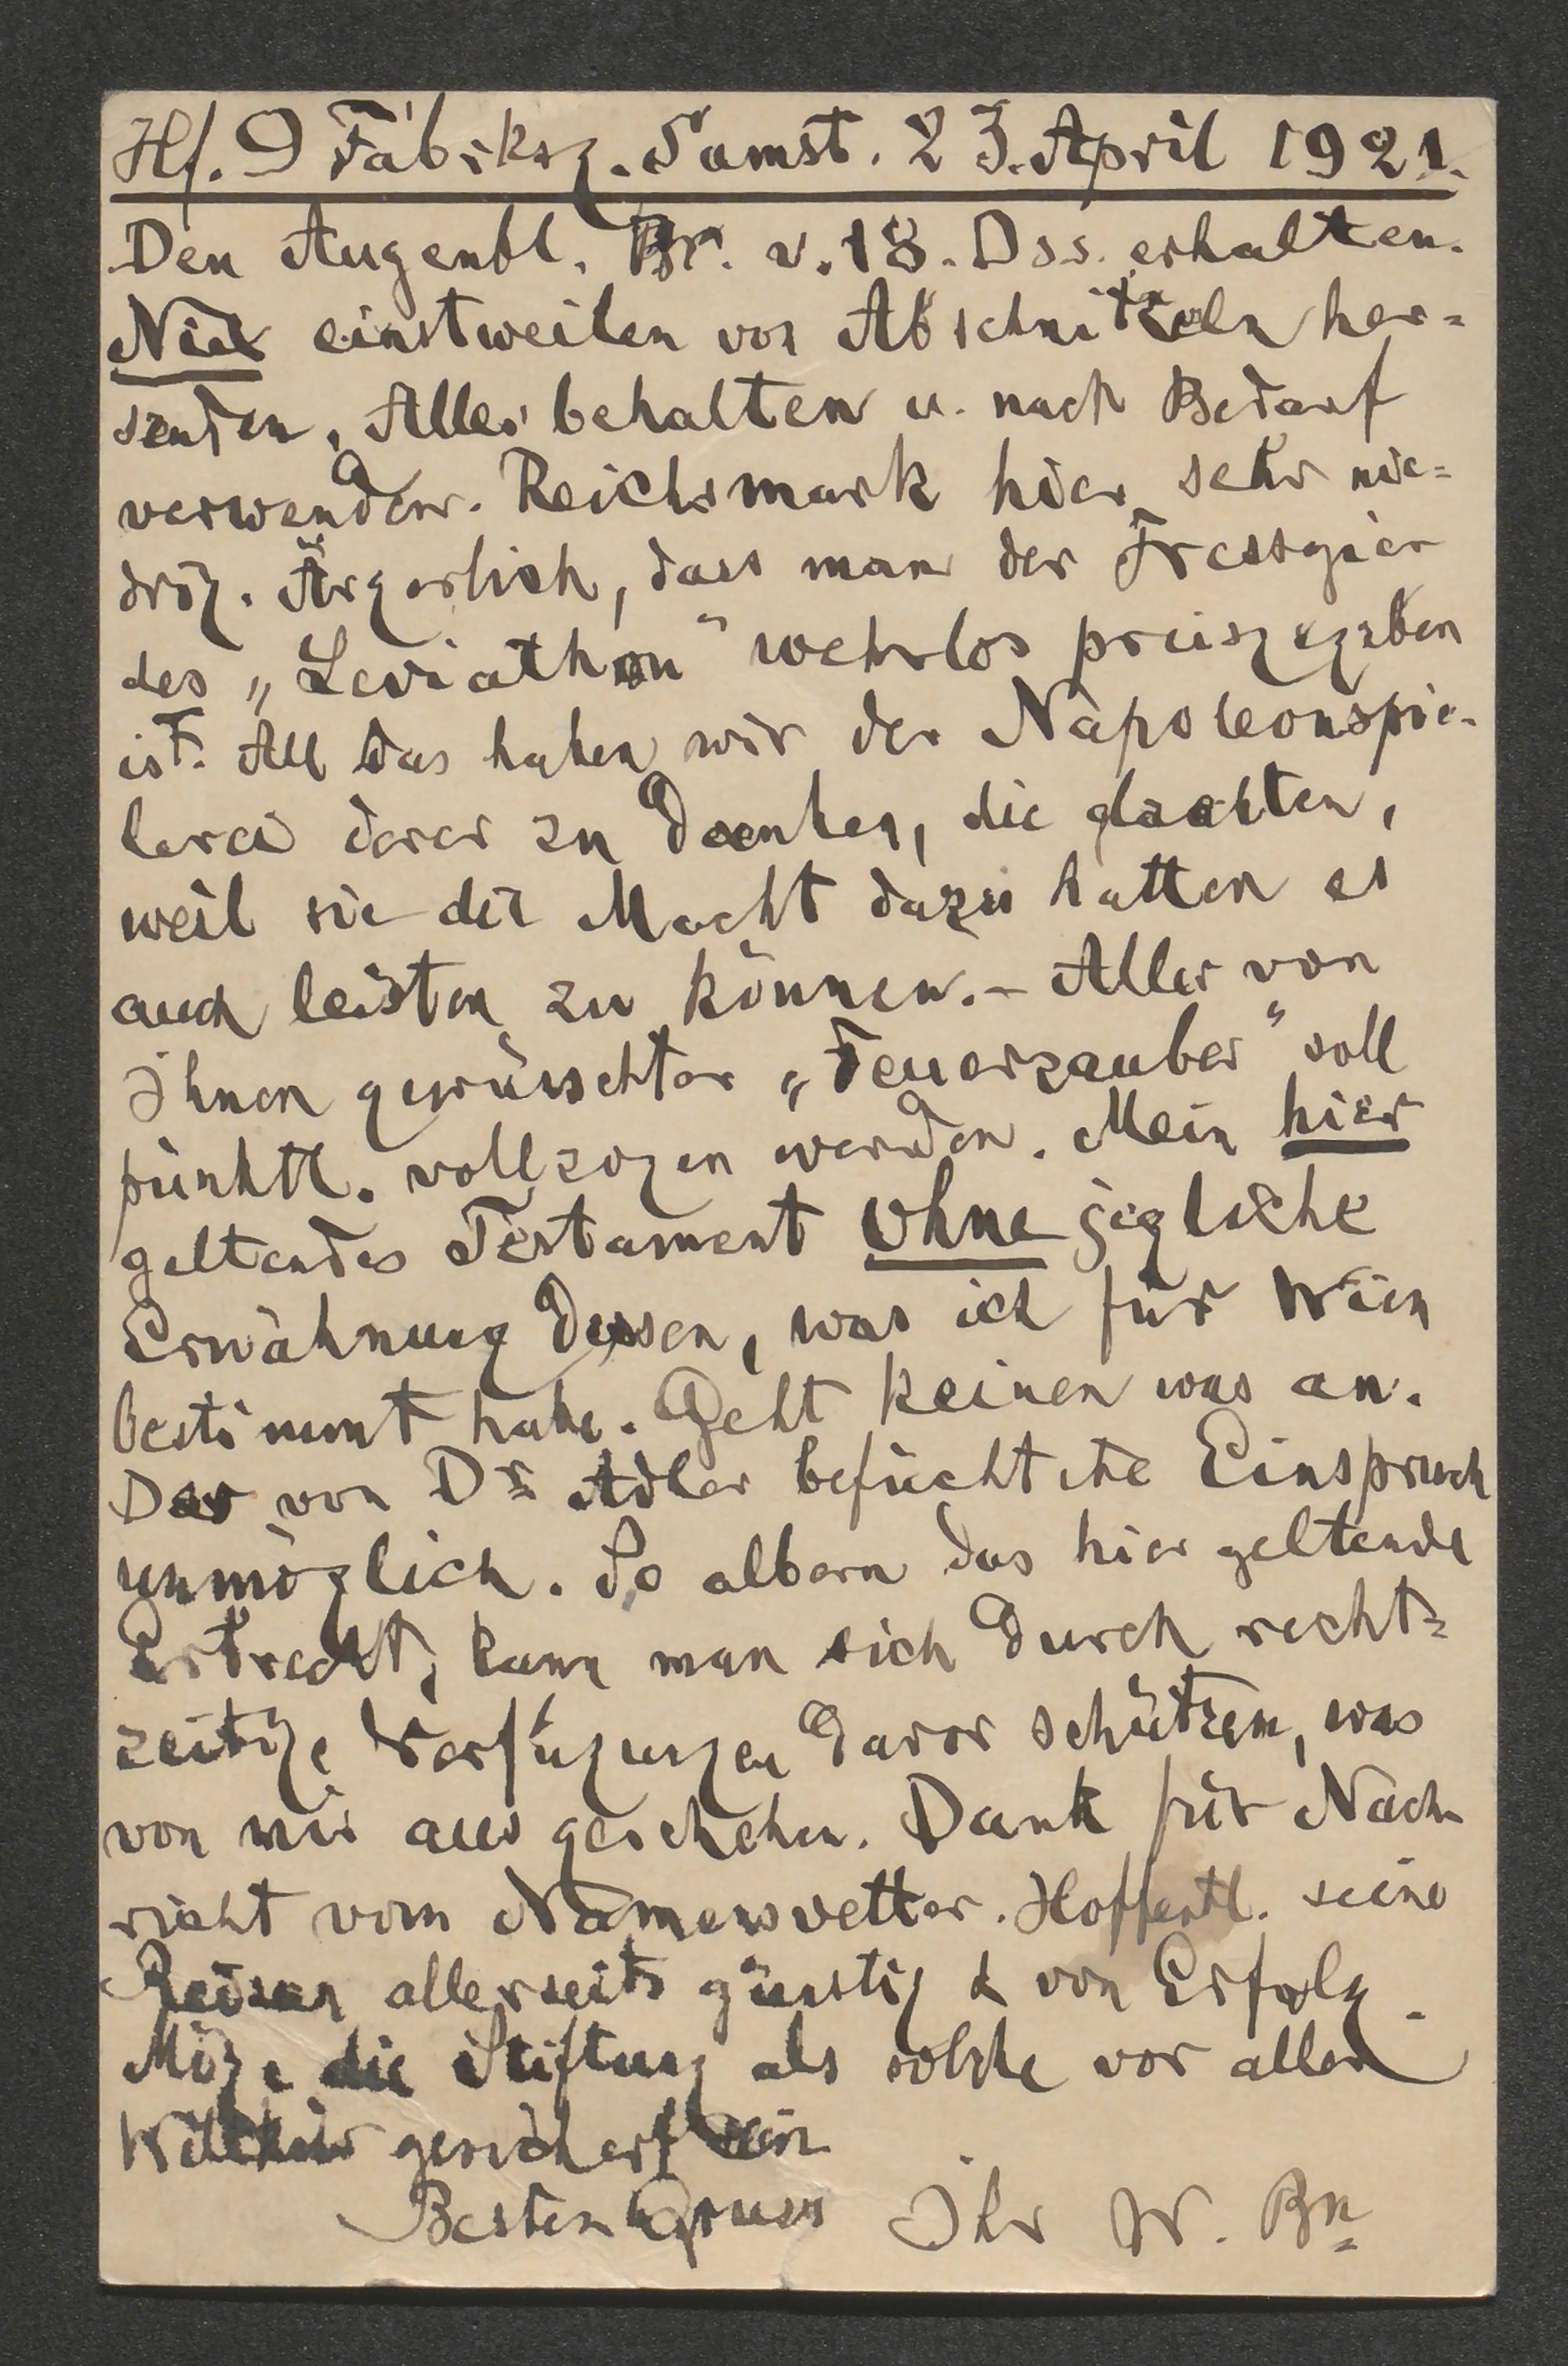 Hf. 9 Fabriksg. Samst. 23. April 1921.
Den Augenbl. Br. v. 18. Dss. erhalten.
Nix einstweilen von Abschnitzeln her=
senden, Alles behalten u. nach Bedarf
verwenden. Reichsmark hier sehr nie=
drig. Ärgerlich, dass man der Fressgier
des „Leviathan" wehrlos preisgegeben
ist. All das haben wir der Napoleonspie-
lerei derer zu danken, die glaubten,
weil sie die Macht dazu hatten es
auch leisten zu können. – Aller von
Ihnen gewünschter „Feuerzauber" soll
pünktl. vollzogen werden. Mein hier
geltendes Testament ohne jegliche
Erwähnung dessen, was ich für Wien
bestimmt habe. Geht keinen was an.
Der von Dr Adler befüchtete Einspruch
unmöglich. So albern das hier geltende
Erbrecht, kann man sich durch recht=
zeitige Verfügungen davor schützen, was
von mir aus geschehen. Dank für Nach
richt vom Namensvetter. Hoffentl. seine
Reisen allerseits günstig & von Erfolg.
Möge die Stiftung als solche vor aller
Willkür gesichert sein
Besten Gruss Ihr W. Bn